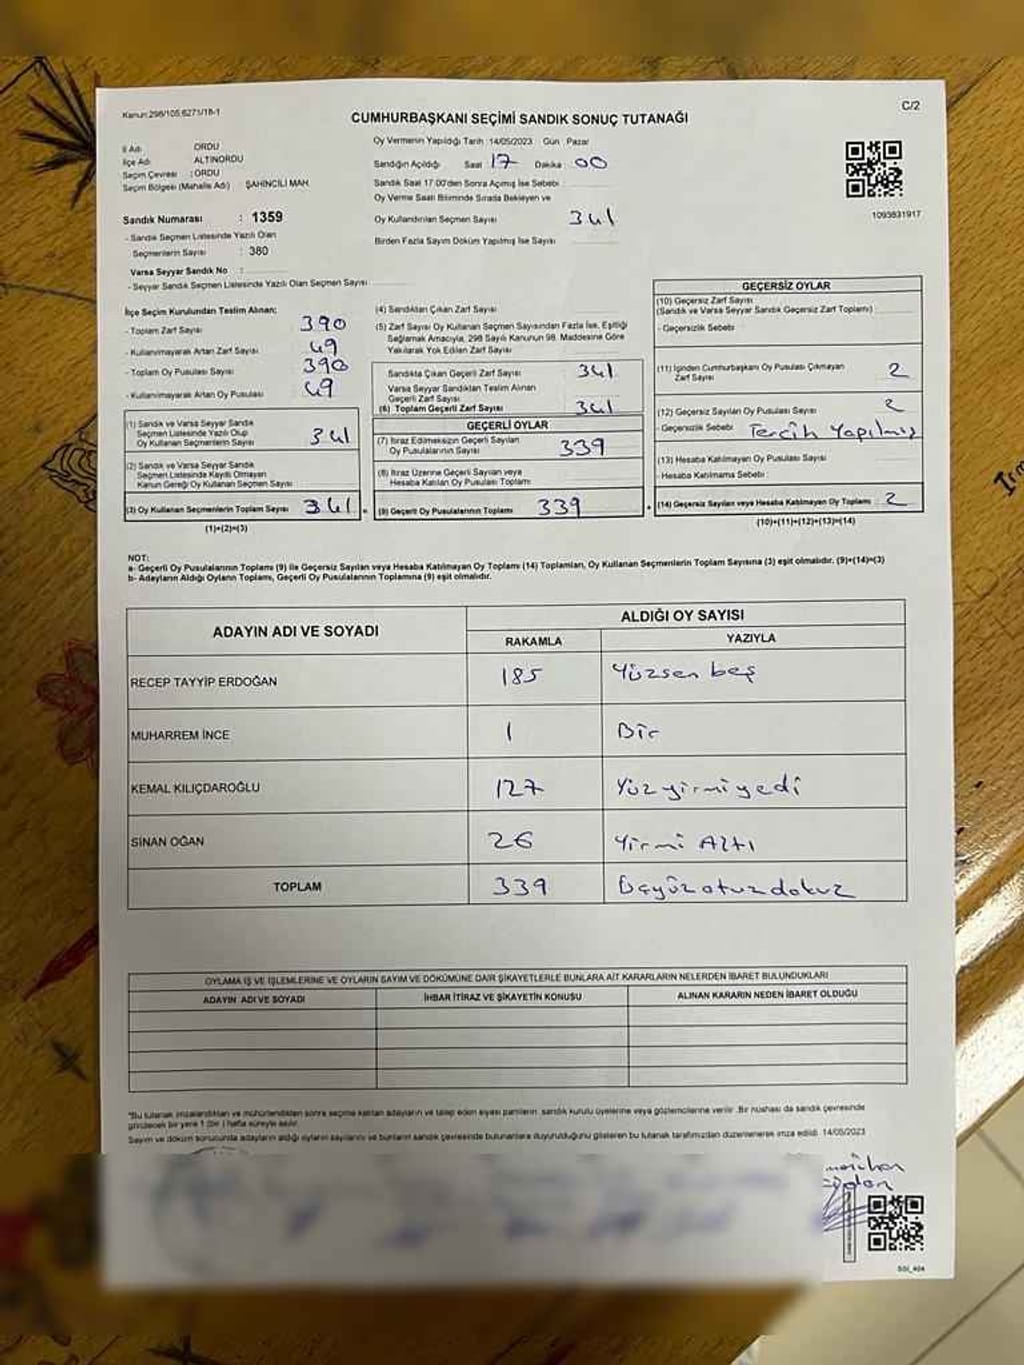 Kanun:298/105,6271/18-1
C/2
CUMHURBAŞKANI SEÇİMİ SANDIK SONUÇ TUTANAĞI
İl Adı ORDU
İlçe Adı ALTINORDU
Seçim Çevresi : ORDU
Seçim Bölgesi (Mahalle Adı) : ŞAHİNCİLİ MAH.
Sandık Numarası : 1359
- Sandık Seçmen Listesinde Yazılı Olan
Seçmenlerin Sayısı : 380
Varsa Seyyar Sandık No :
- Seyyar Sandık Seçmen Listesinde Yazılı Olan Seçmen Sayısı
Oy Vermenin Yapıldığı Tarih :14/05/2023 Gün Pazar
Sandığın Açıldığı Saat 17 Dakika 00
Sandık Saat 17:00'den Sonra Açılmış İse Sebebi
Oy Verme Saati Bitiminde Sırada Bekleyen ve
Oy Kullandırılan Seçmen Sayısı 341
Birden Fazla Sayım Döküm Yapılmış İse Sayısı
1093831917
İlçe Seçim Kurulundan Teslim Alınan;
- Toplam Zarf Sayısı 390
- Kullanılmayarak Artan Zarf Sayısı 49
- Toplam Oy Pusulası Sayısı 390
- Kullanılmayarak Artan Oy Pusulası 49
(1) Sandık ve Varsa Seyyar Sandık
Seçmen Listesinde Yazılı Olup
Oy Kullanan Seçmenlerin Sayısı 341
(2) Sandık ve Varsa Seyyar Sandık
Seçmen Listesinde Kaydı Olmayan
Kanun Gereği Oy Kullanan Seçmen Sayısı
(3) Oy Kullanan Seçmenlerin Toplam Sayısı 341
(1)+(2)=(3)
(4) Sandıktan Çıkan Zarf Sayısı
(5) Zarf Sayısı Oy Kullanan Seçmen Sayısından Fazla İse, Eşitliği
Sağlamak Amacıyla, 298 Sayılı Kanunun 98. Maddesine Göre
Yakılarak Yok Edilen Zarf Sayısı
Sandıkta Çıkan Geçerli Zarf Sayısı 341
Varsa Seyyar Sandıktan Teslim Alınan
Geçerli Zarf Sayısı
(6) Toplam Geçerli Zarf Sayısı 341
GEÇERLİ OYLAR
(7) İtiraz Edilmeksizin Geçerli Sayılan
Oy Pusulalarının Sayısı 339
(8) İtiraz Üzerine Geçerli Sayılan veya
Hesaba Katılan Oy Pusulası Toplamı
(9) Geçerli Oy Pusulalarının Toplamı 339
GEÇERSİZ OYLAR
(10) Geçersiz Zarf Sayısı
(Sandık ve Varsa Seyyar Sandık Geçersiz Zarf Toplamı)
- Geçersizlik Sebebi
(11) İçinden Cumhurbaşkanı Oy Pusulası Çıkmayan
Zarf Sayısı 2
(12) Geçersiz Sayılan Oy Pusulası Sayısı 2
- Geçersizlik Sebebi Tercih Yapılmış
(13) Hesaba Katılmayan Oy Pusulası Sayısı
- Hesaba Katılmama Sebebi :
(14) Geçersiz Sayılan veya Hesaba Katılmayan Oy Toplamı : 2
(10)+(11)+(12)+(13)=(14)
NOT:
a- Geçerli Oy Pusulalarının Toplamı (9) ile Geçersiz Sayılan veya Hesaba Katılmayan Oy Toplamı (14) Toplamları, Oy Kullanan Seçmenlerin Toplam Sayısına (3) eşit olmalıdır. (9)+(14)=(3)
b- Adayların Aldığı Oyların Toplamı, Geçerli Oy Pusulalarının Toplamına (9) eşit olmalıdır.
ADAYIN ADI VE SOYADI
ALDIĞI OY SAYISI
RAKAMLA YAZIYLA
RECEP TAYYİP ERDOĞAN 185 Yüzsen beş
MUHARREM İNCE 1 Bir
KEMAL KILIÇDAROĞLU 127 Yüzyirmiyedi
SİNAN OĞAN 26 Yirmi Altı
TOPLAM 339 Üçyüzotuzdokuz
OYLAMA İŞ VE İŞLEMLERİNE VE OYLARIN SAYIM VE DÖKÜMÜNE DAİR ŞİKAYETLERLE BUNLARA AİT KARARLARIN NELERDEN İBARET BULUNDUKLARI
ADAYIN ADI VE SOYADI İHBAR İTİRAZ VE ŞİKAYETİN KONUSU ALINAN KARARIN NEDEN İBARET OLDUĞU
*Bu tutanak imzalandıktan ve mühürlendikten sonra seçime katılan adayların ve talep eden siyasi partilerin, sandık kurulu üyelerine veya gözlemcilerine verilir. Bir nüshası da sandık çevresinde
görülecek bir yere 1 (bir) hafta süreyle asılır.
Sayım ve döküm sonucunda adayların aldığı oyların sayılarını ve bunların sandık çevresinde bulunanlara duyurulduğunu gösteren bu tutanak tarafımızdan düzenlenerek imza edildi. 14/05/2023